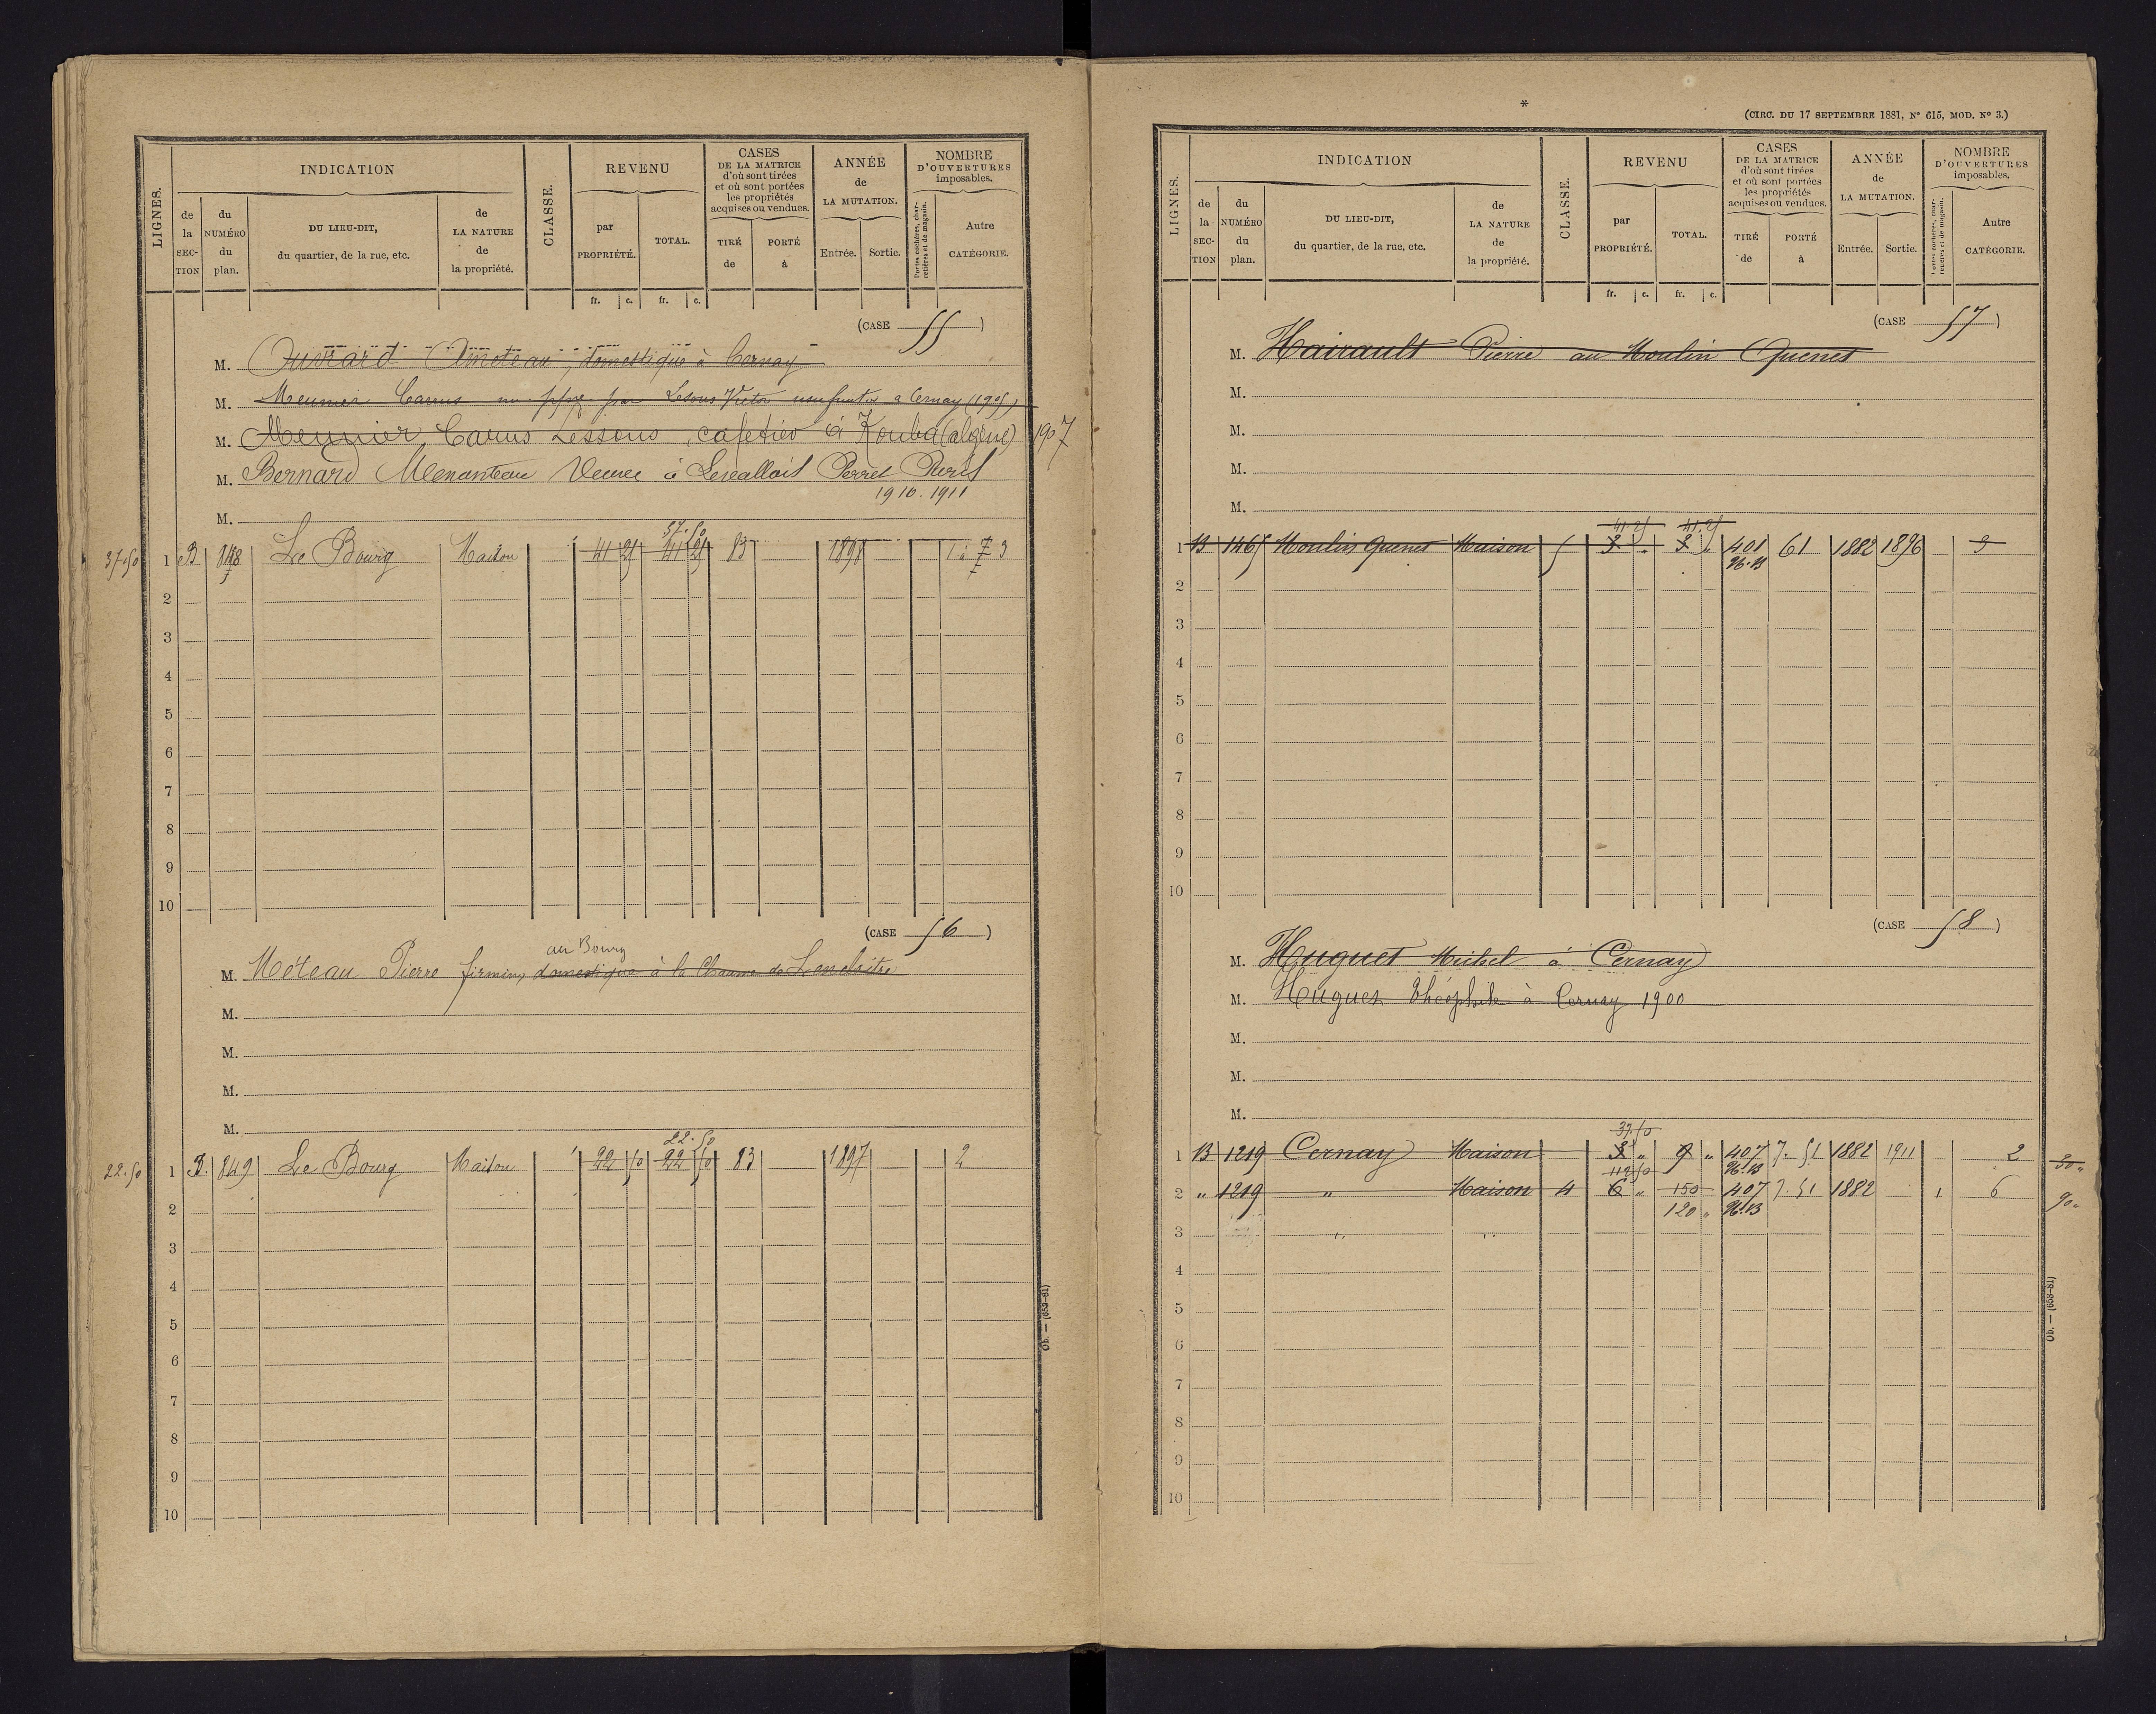 LIGNES.
INDICATION
de la SECTION
du NUMÉRO du plan.
DU LIEU-DIT, du quartier, de la rue, etc.
de LA NATURE de la propriété.
CLASSE.
REVENU
par PROPRIÉTÉ.
TOTAL.
CASES DE LA MATRICE d'où sont tirées et où sont portées les propriétés acquises ou vendues.
TIRÉ de
PORTÉ à
ANNÉE de LA MUTATION.
Entrée.
Sortie.
NOMBRE D'OUVERTURES imposables.
Portes cochères, charretières et de magasin.
Autre CATÉGORIE.
fr. c. fr. c.
(CASE 55)
M. Ouvrard Ameteau, domestique à Cernay
M. Meunier Camus nu ppre par Lesous Victor usufruitier à Cernay (1905)
M. Meunier, Camus Lessous, cafetier à Kouba (algérie) 1907
M. Bernard Menanteau Veuve à Levallois Perret Paris
1910. 1911
M.
37.50
37.50 1 B 848 Le Bourg Maison 41 25 41 25 83 1898 7 3
2
3
4
5
6
7
8
9
10
(CASE 56)
au Bourg
M. Moteau Pierre firmin, domestique à la Chaume de Lencloitre
M.
M.
M.
M.
22.50
22.50 1 B. 849 Le Bourg Maison 22 50 22 50 83 1897 2
2
3
4
5
6
7
8
9
10
Ob. — (653-81)
*
(CIRC. DU 17 SEPTEMBRE 1881, N° 615, MOD. N° 3.)
LIGNES.
INDICATION
de la SECTION
du NUMÉRO du plan.
DU LIEU-DIT, du quartier, de la rue, etc.
de LA NATURE de la propriété.
CLASSE.
REVENU
par PROPRIÉTÉ.
TOTAL.
CASES DE LA MATRICE d'où sont tirées et où sont portées les propriétés acquises ou vendues.
TIRÉ de
PORTÉ à
ANNÉE de LA MUTATION.
Entrée.
Sortie.
NOMBRE D'OUVERTURES imposables.
Portes cochères, charretières et de magasin.
Autre CATÉGORIE.
fr. c. fr. c.
(CASE 57)
M. Hairault Pierre au Moulin Quenet
M.
M.
M.
M.
41.25 41.25
1 B 1465 Moulin Quenet Maison 5 3 3 401 61 1882 1896 3
2
3
4
5
6
7
8
9
10
(CASE 58)
M. Huguet Michel à Cernay
M. Huguet Théophile à Cernay 1900
M.
M.
M.
37.50
1 B 1219 Cernay Maison 3 " 9 " 407 7.51 1882 1911 2 30 "
112.50
2 " 1219 " Maison 4 6 " 150 407 7.51 1882 1 6 90 "
120 "
3
4
5
6
7
8
9
10
Ob. — (653-81)